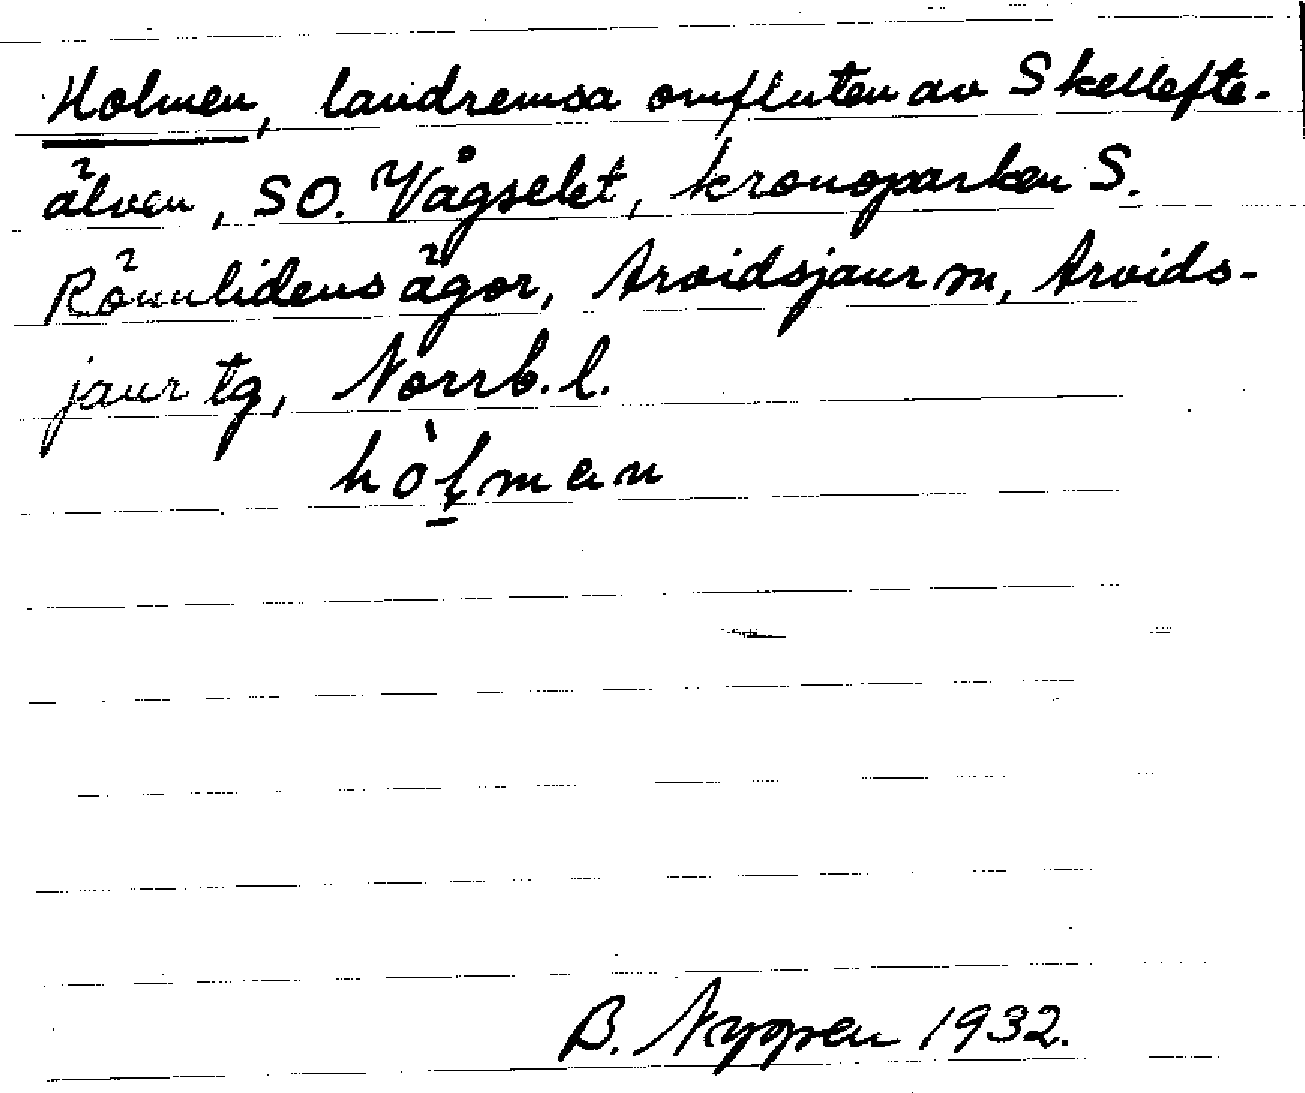 Holmen, landremsa omfluten av Skellefte-
älven, SO. Vågselet, kronoparken S.
Rönnlidens ägor, Arvidsjaur sn, Arvids-
jaur tg, Norrb. l.
hòḻmen
B. Nygren 1932.